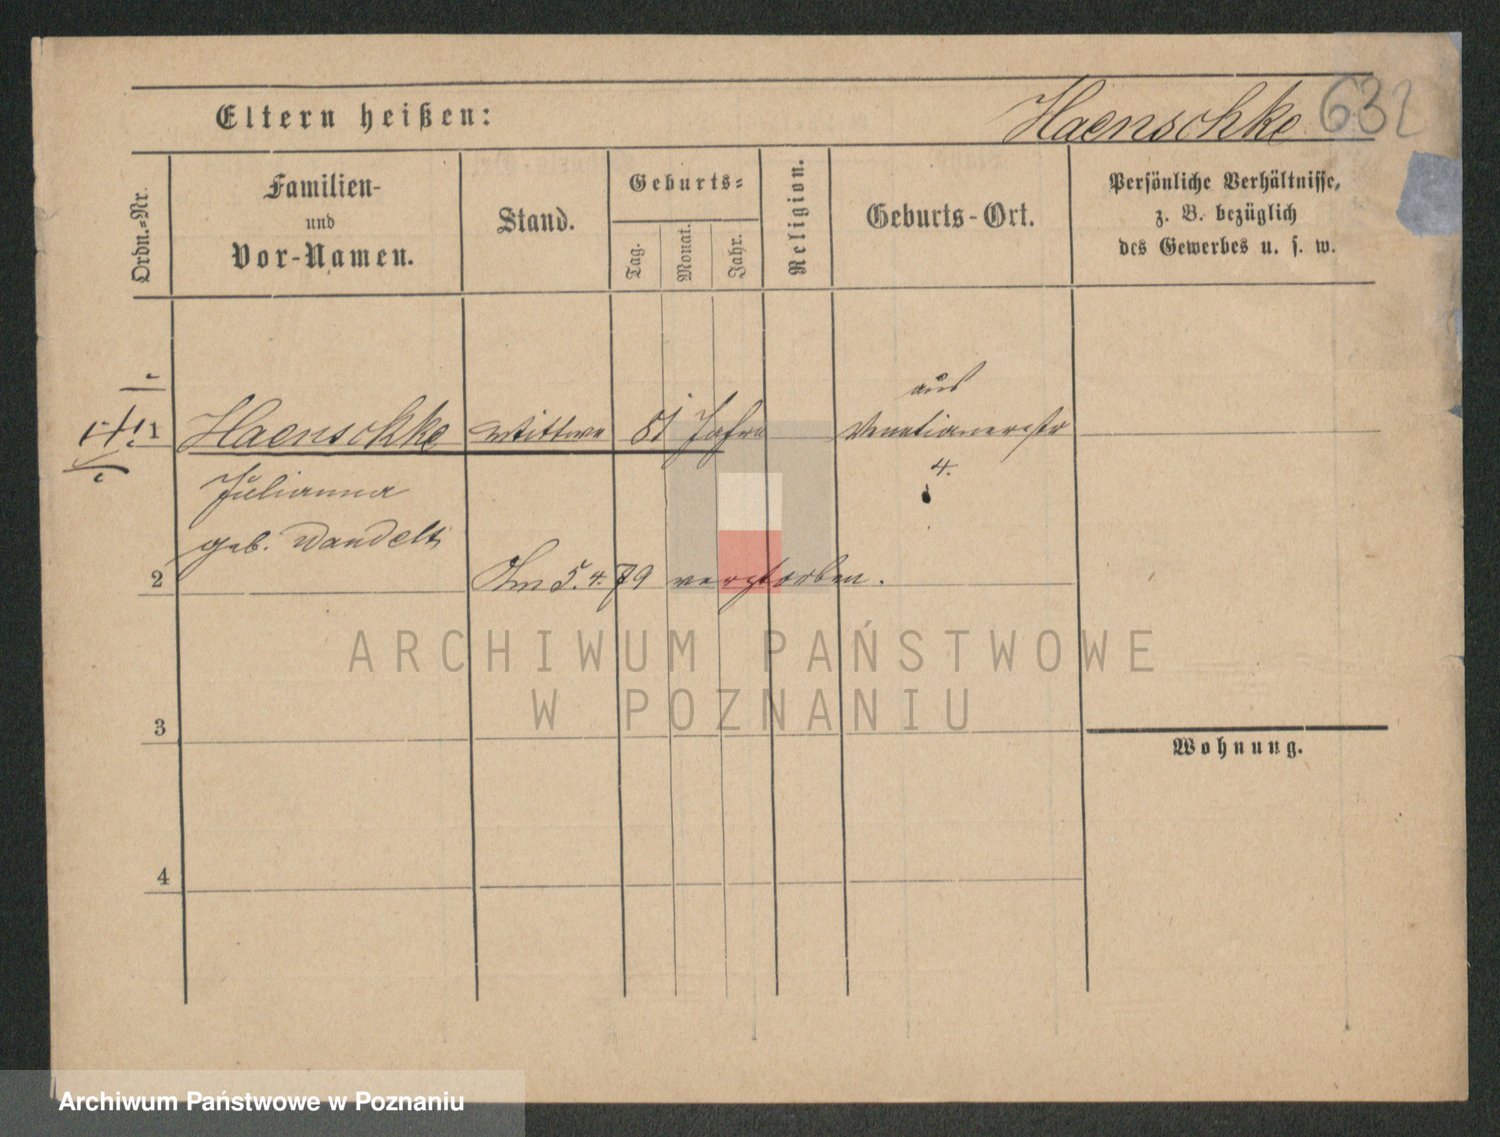 Eltern heißen: Haenschke 632
Ordn.=Nr.
Familien-
und
Vor-Namen.
Stand.
Geburts=
Tag.
Monat.
Jahr.
Religion.
Geburts-Ort.
Persönliche Verhältnisse,
z. B. bezüglich
des Gewerbes u. s. w.
aus
1 Haenschke Wittwe 81 Jahre Venetianerstr
4.
Julianna
geb. Wandelt
2 Am 5.4.79 verstorben.
ARCHIWUM PAŃSTWOWE
W POZNANIU
3
Wohnung.
4
Archiwum Państwowe w Poznaniu